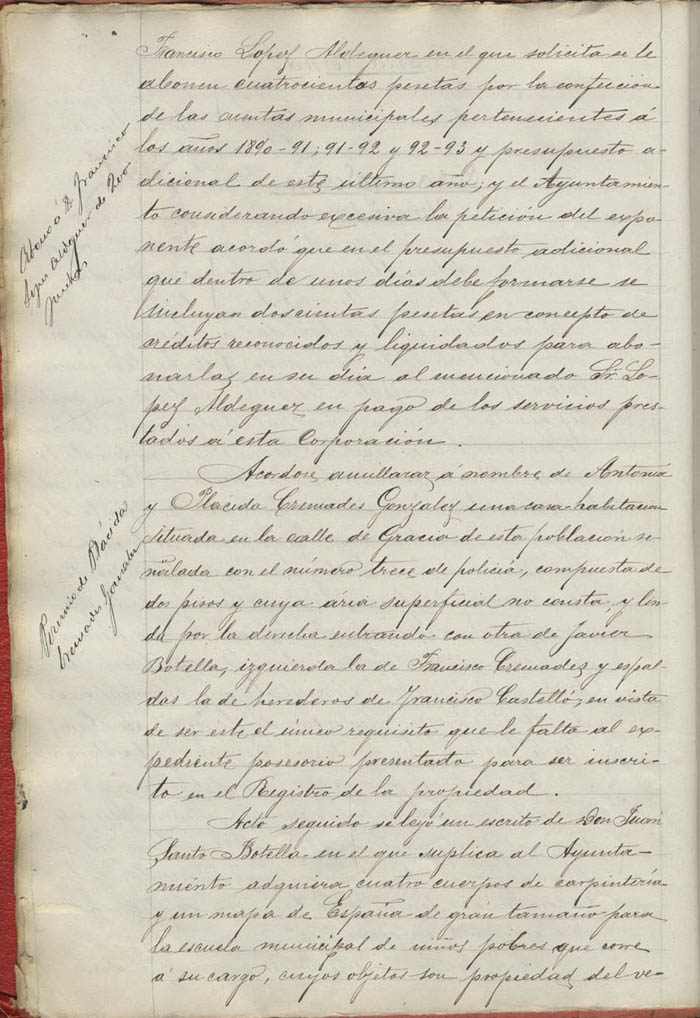 Francisco Lopez Aldeguer en el que solicita se le
abonen cuatrocientas pesetas por la confeccion
de las cuentas municipales pertenecientes á
los años 1890-91; 91-92 y 92-93 y presupuesto a-
dicional de este último año; y el Ayuntamien-
to considerando excesiva la petición del expo-
nente acordó que en el presupuesto adicional
que dentro de unos días debe formarse se
incluyan doscientas pesetas en concepto de
créditos reconocidos y liquidados para abo-
narlas en su día al mencionado Sr. Lo-
pez Aldeguer en pago de los servicios pres-
tados á esta Corporación.
Abono á D. Francisco
Lopez Aldeguer de 200
pesetas
Acordose amillarar á nombre de Antonia
y Plácida Cremades Gonzalez una casa-habitacion
situada en la calle de Gracia de esta población se-
ñalada con el número trece de policía, compuesta de
dos pisos y cuya ária superficial no consta, y lin-
da por la derecha entrando con otra de Javier
Botella, izquierda la de Francisco Cremades y espal-
das la de herederos de Francisco Castelló, en vista
de ser este el único requisito que le falta al ex-
pediente posesorio presentado para ser inscri-
to en el Registro de la propiedad.
de Plácida
Cremades Gonzalez
Acto seguido se leyó un escrito de Don Juan
Santo Botella en el que suplica al Ayunta-
miento adquiera cuatro cuerpos de carpintería
y un mapa de España de gran tamaño para
la escuela municipal de niños pobres que corre
á su cargo, cuyos objetos son propiedad del ve-